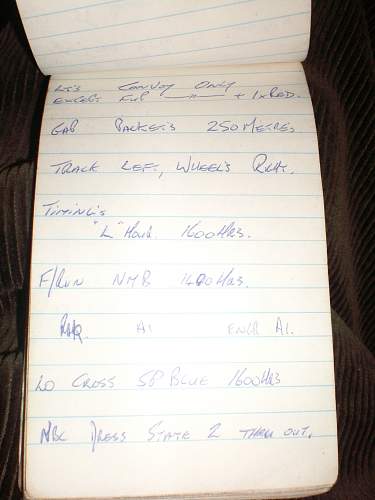 LT'S CONVOY ONLY
EXCEPT FUP —"— + 1xRED.
GAP PACKETS 250 METRES
TRACK LEFT, WHEEL'S RIGHT.
TIMING'S
"L" HOUR 1600HRS.
F/RUN NMB 1400HRS.
RHQ A1 ENGR A1.
LO CROSS SP BLUE 1600HRS
NBC DRESS STATE 2 THRU OUT.